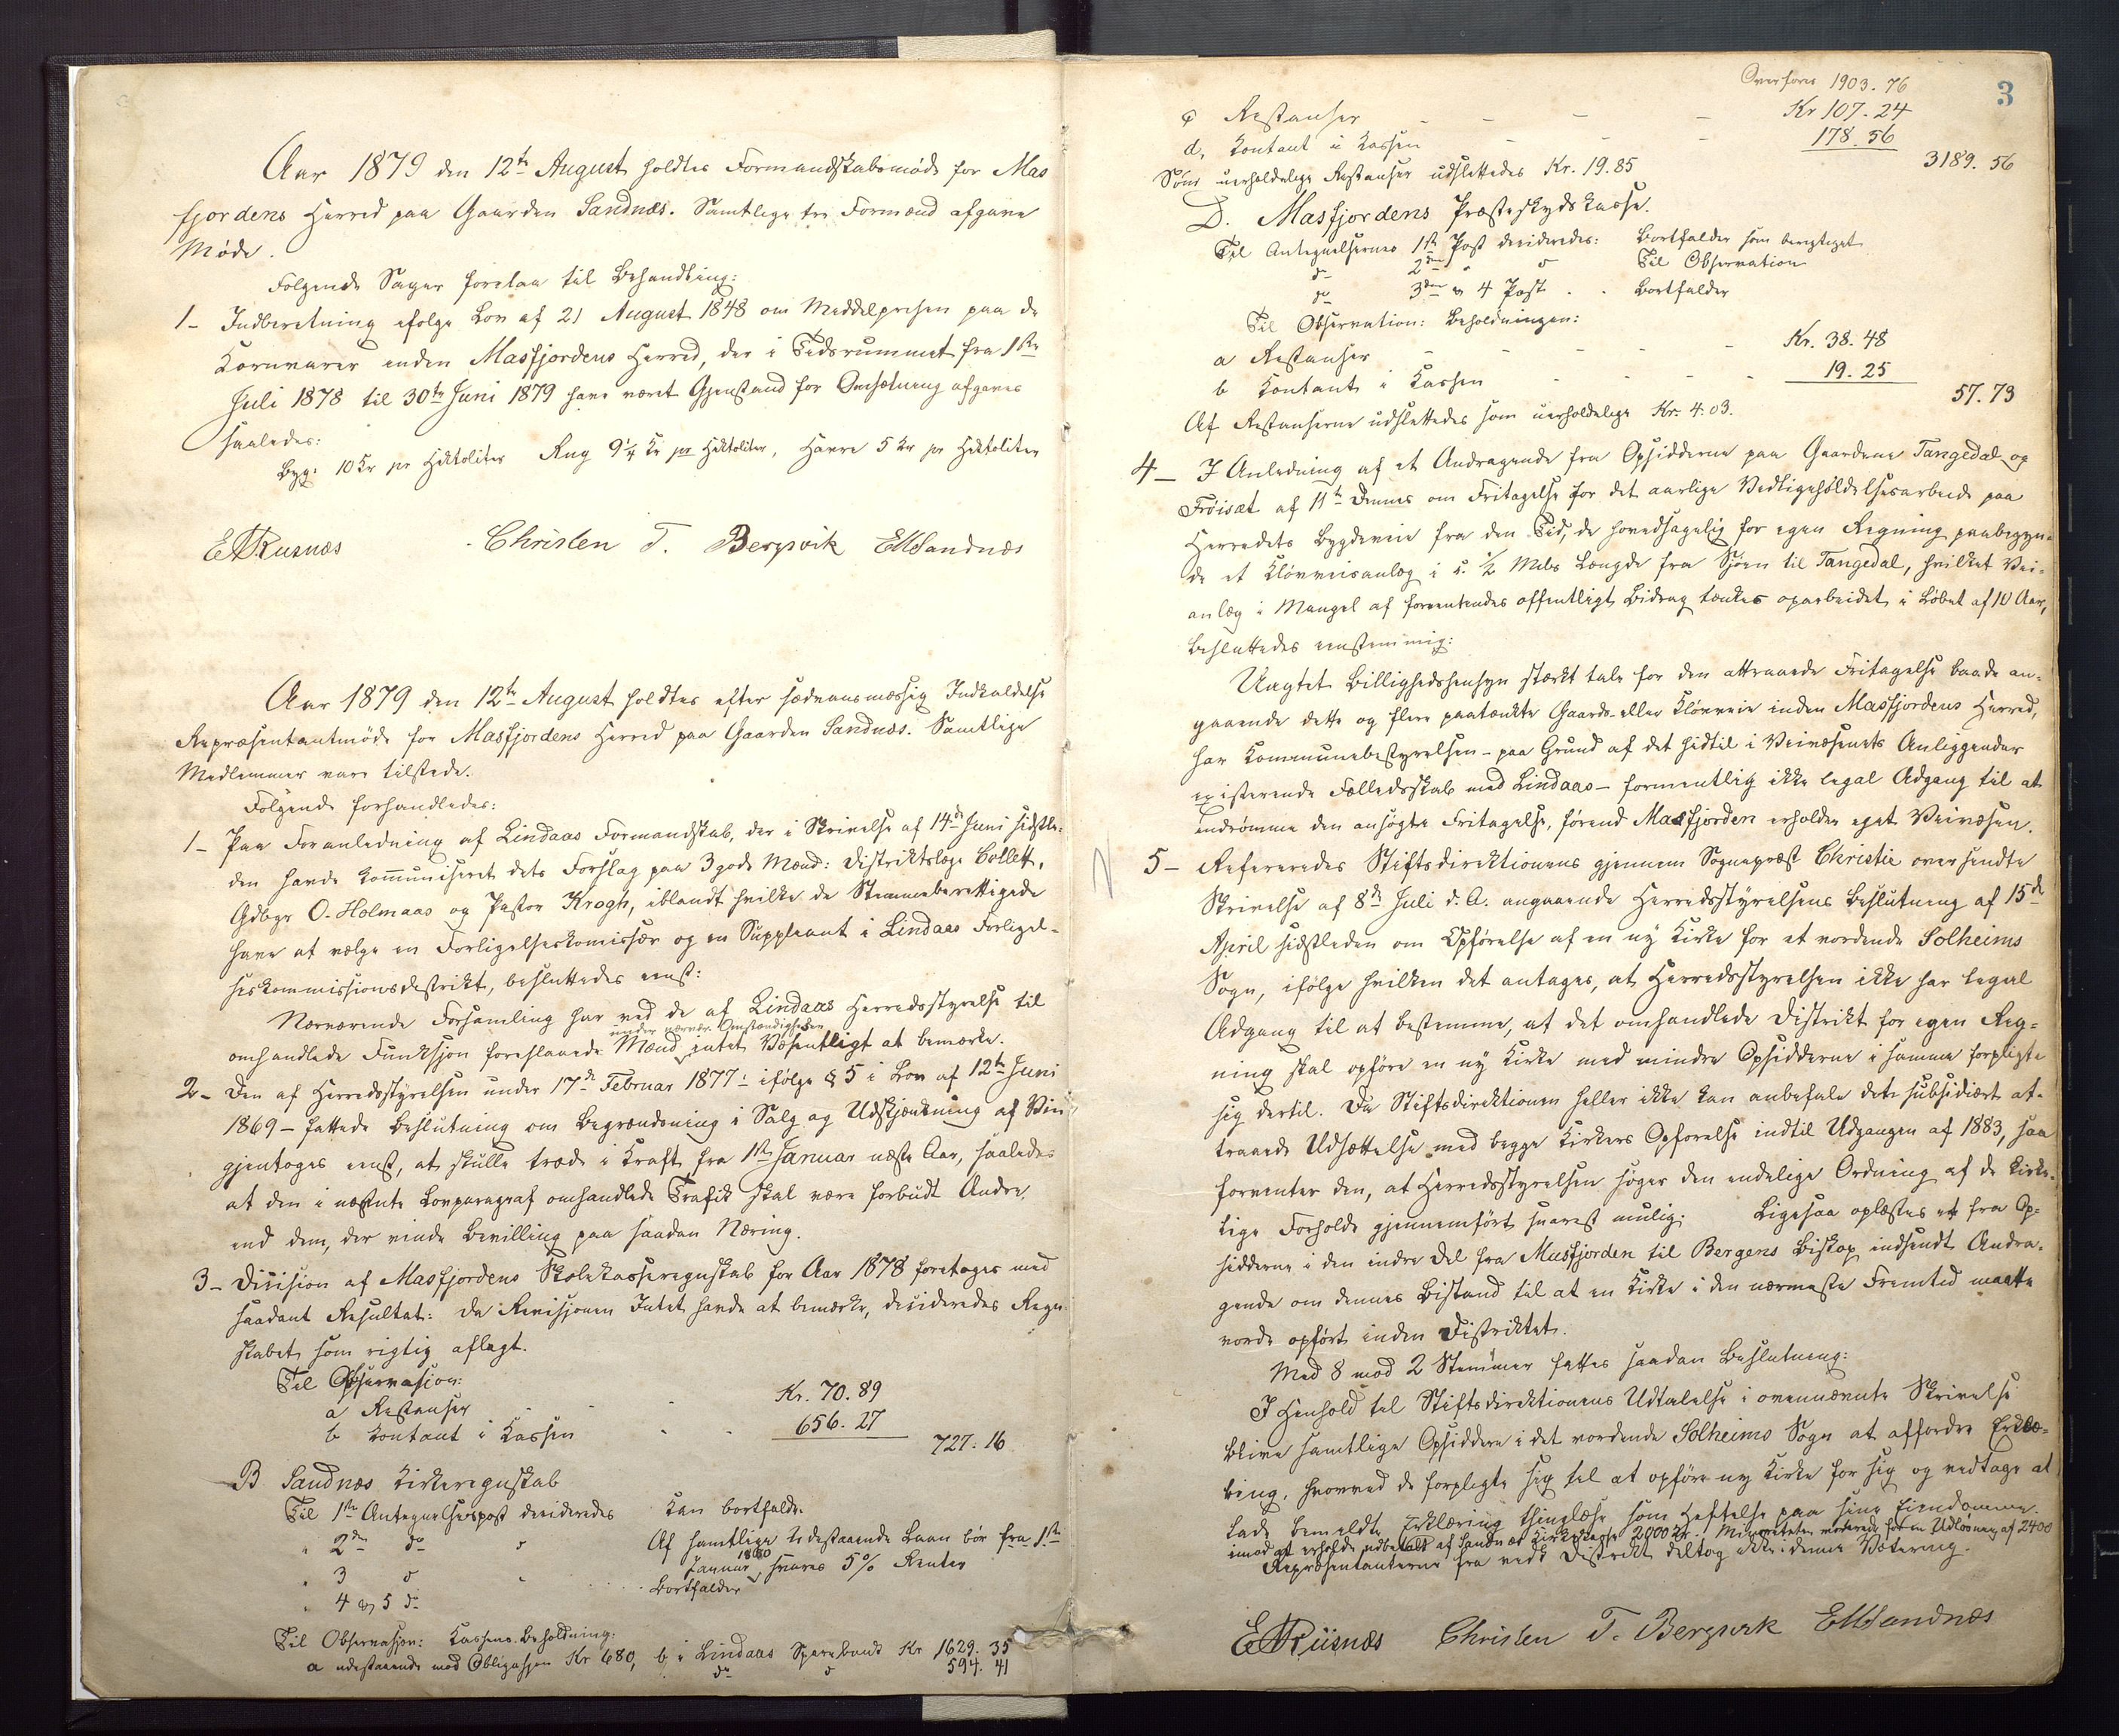 Aar 1879 den 12te August holdtes Formandskabsmøde for Mas
fjordens Herred paa Gaarden Sandnæs. Samtlige tre Formænd afgave
Møde.
Følgende Sager foretaa til Behandling:
1- Indberetning ifølge Lov af 21 August 1848 om Middelprisen paa de
Kornvarer inden Masfjordens Herred, der i Tidsrummet fra 1ste
Juli 1878 til 30te Juni 1879 have været Gjenstand for Omsætning afgaves
saaledes:
Byg: 10 Kr pr Hektoliter Rug 9 1/4 Kr pr Hektoliter, Havre 5 Kr pr Hektoliter
Christen T. Bergsvik EMSandnæs
Aar 1879 den 12te August holdtes efter sædvansmæssig Indkaldelse
Repræsentantmøde for Masfjordens Herred paa Gaarden Sandnæs. Samtlige
Medlemmer vare tilstede.
Følgende forhandledes:
1- Paa Foranledning af Lindaas Formandskab, der i Skrivelse af 14de Juni sidstle-
den havde kommuniseret dets Forslag paa 3 gode Mænd: Distriktslæge Collett,
Gdbgr O. Holmaas og Pastor Krogh, iblandt hvilke de Stemmeberettigede
have at vælge en Forligelseskomissær og en Suppleant i Lindaas Forligel-
seskommissionsdistrikt, besluttedes enst:
Nærværende Forsamling har ved de af Lindaas Herredsstyrelse til
under nærvær. Omstændigheder
omhandlede Funksjon foreslaaede Mænd intet Væsentligt at bemærke.
2- Den af Herredsstyrelsen under 17de Februar 1877 - ifølge § 5 i Lov af 12te Juni
1869 - fattede Beslutning om Begrændsning i Salg og Udskjænkning af Vin
gjentoges enst, at skulle træde i Kraft fra 1ste Januar næste Aar, saaledes
at den i nævnte Lovparagraf omhandlede Trafik skal være forbudt Andre,
end dem, der vinde Bevilling paa saadan Næring.
3- Desision af Masfjordens Skolekasseregnskab for Aar 1878 foretoges med
saadant Resultat: Da Revisjonen Intet havde at bemærke, desideredes Regn-
skabet som rigtig aflagt.
Til Observasjon:
a Restanser - - Kr. 70.89
b Kontant i Kassen - - 656.27
727.16
B Sandnæs Kirkeregnskab
Til 1ste Antegnelsespost desideredes Kan bortfalde.
" 2den do " Af samtlige udestaaende Laan bør fra 1ste
Januar 1880 svares 5% Renter
" 3 " "
" 4 og 5 do Bortfalder
Til Observasjon: Kassens Beholdning:
a udestaaende mod Obligasjon Kr 680, b i Lindaas Sparebank Kr 1629.35
do 594.41
3
Overføres 1903.76
c Restanser - - - Kr 107.24
d, Kontant i Kassen - - - 178.56
3189.56
Som uerholdelige Restanser udslettedes Kr. 19.85
D. Masfjordens Præsteskydskasse.
Til Antegnelsernes 1ste Post desideredes: Bortfalder som berigtiget
do 2den " " Til Observation
do 3die og 4 Post . . Bortfalder
Til Observation: Beholdningen:
a Restanser - - - - Kr. 38.48
b Kontant i Kassen - - - 19.25
57.73
Af Restanserne udslettedes som uerholdelige Kr. 4.03.
4- I Anledning af et Andragende fra Opsidderne paa Gaardene Tangedal og
Frøiset af 11te Dennes om Fritagelse for det aarlige Vedligeholdelsesarbeide paa
Herredets Bygdeveie fra den Tid, de hovedsagelig for egen Regning paabegyn-
de et Kløvveisanlæg i c. 1/2 Mils Længde fra Sjøen til Tangedal, hvilket Vei-
anlæg i Mangel af forventendes offentligt Bidrag tænkes oparbeidet i Løbet af 10 Aar,
besluttedes enstemmig:
Uagtet Billighedshensyn stærkt tale for den attraaede Fritagelse baade an-
gaaende dette og flere paatænkte Gaards- eller Kløvveie inden Masfjordens Herred,
har Kommunebestyrelsen - paa Grund af det hidtil i Veivæsenets Anliggender
existerende Fællesskab med Lindaas - formentlig ikke legal Adgang til at
indrømme den ansøgte Fritagelse, førend Masfjorden erholder eget Veivæsen.
5- Refereredes Stiftsdirektionens gjennem Sognepræst Christie oversendte
Skrivelse af 8de Juli d. A. angaaende Herredsstyrelsens Beslutning af 15de
April sidstleden om Opførelse af en ny Kirke for et vordende Solheims
Sogn, ifølge hvilken det antages, at Herredsstyrelsen ikke har legal
Adgang til at bestemme, at det omhandlede Distrikt for egen Reg-
ning skal opføre en ny Kirke med mindre Opsidderne i samme forpligte
sig dertil. Da Stiftsdirektionen heller ikke kan anbefale det subsidiært at-
traaede Udsættelse med begge Kirkers Opførelse indtil Udgangen af 1883, saa
forventer den, at Herredsstyrelsen søger den endelige Ordning af de kirke-
lige Forholde gjennemført snarest mulig. Ligesaa oplæstes et fra Op-
sidderne i den indre Del fra Masfjorden til Bergens Biskop indsendt Andra-
gende om dennes Bistand til at en Kirke i den nærmeste Fremtid maatte
vorde opført inden Distriktet.
Med 8 mod 2 Stemmer fattes saadan Beslutning:
I Henhold til Stiftsdirektionens Udtalelse i ovennævnte Skrivelse
blive samtlige Opsiddere i det vordende Solheims Sogn at affordre Erklæ-
ring, hvorved de forpligte sig til at opføre ny Kirke for sig og vedtage at
lade bemeldte Erklæring thinglæse som Heftelse paa sine Eiendomme
imod at erholde udbetalt af Sandnæs Kirkekasse 2000 Kr. Minoriteten voterede for en Udløsning af 2400
Repræsentanterne fra vedk Distrikt deltog ikke i denne Votering.
Christen T. Bergsvik EMSandnæs